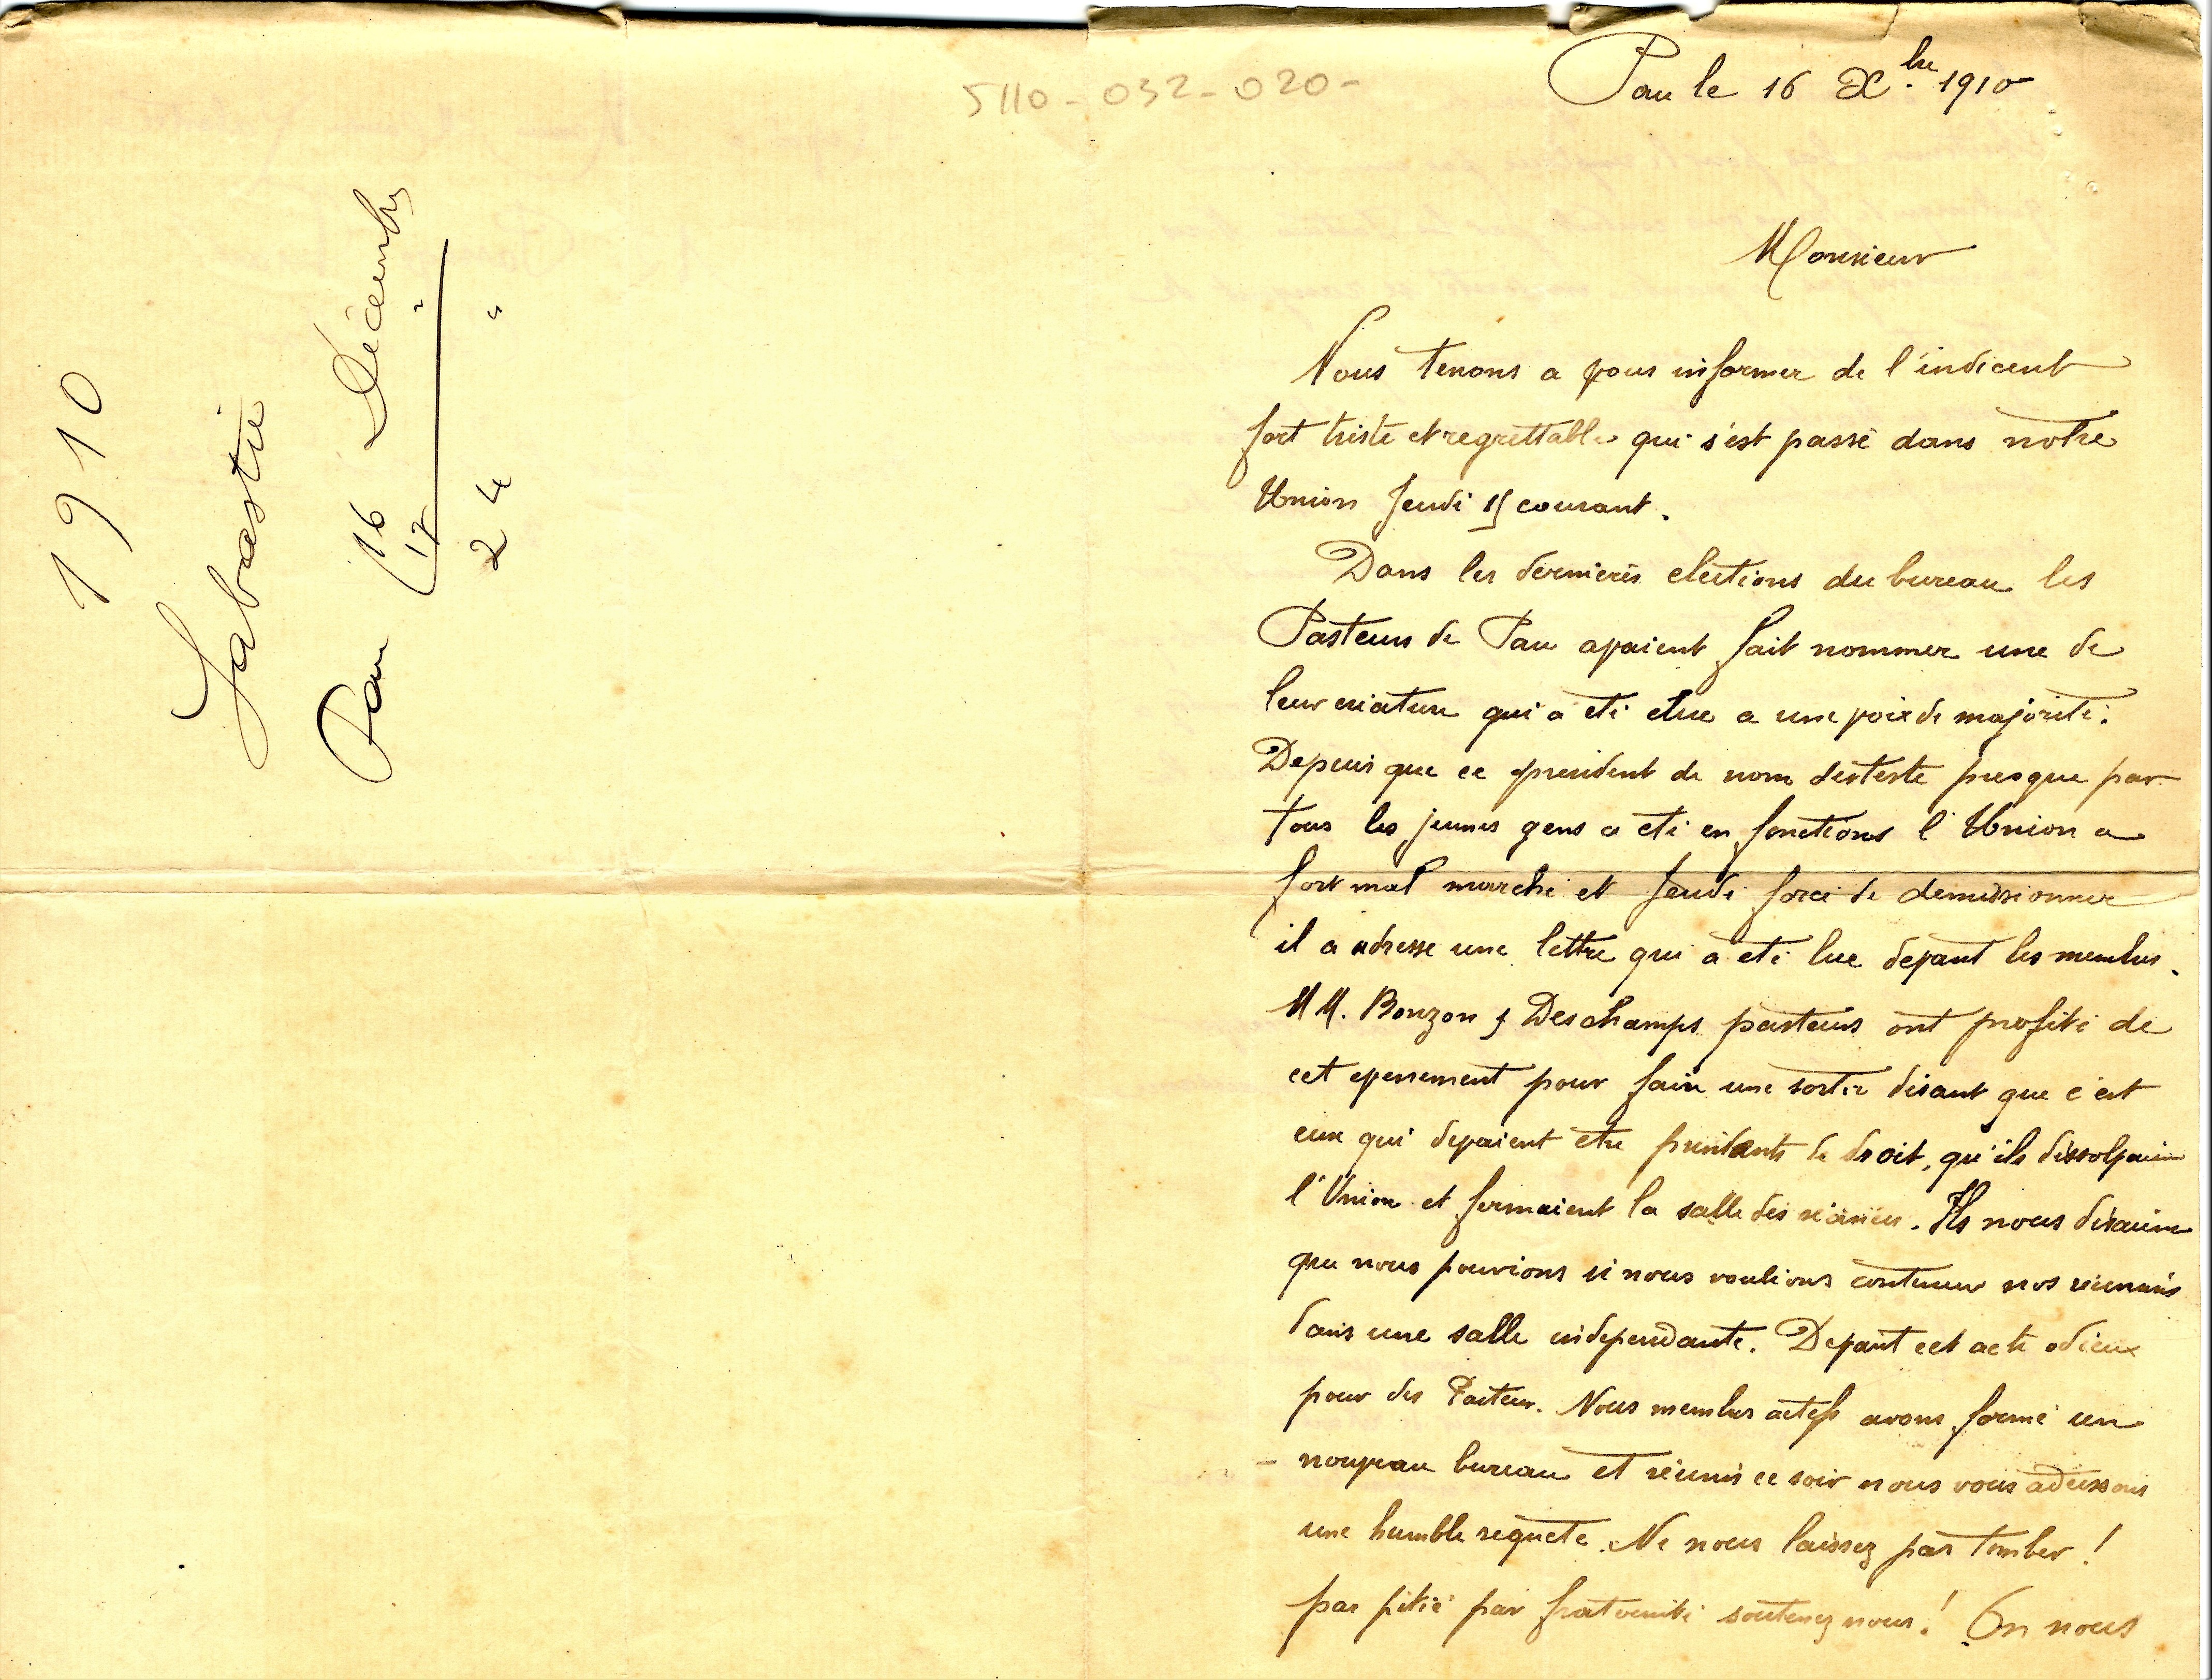 5110-032-020-
1910
Labastie
Pau 16 Décembre
17 "
24 "
Pau le 16 Xbre 1910
Monsieur
Nous tenons a vous informer de l'indicent
fort triste et regrettable qui s'est passé dans notre
Union Jeudi 15 courant.
Dans les dernieres elections du bureau les
Pasteurs de Pau avaient fait nommer une de
leur creature qui a eté elue a une voix de majorité.
Depuis que ce president de nom desteste presque par
tous les jeunes gens a eté en fonctions l'Union a
fort mal marché et Jeudi forcé de demissionner
il a adresse une lettre qui a eté lue devant les membres.
MM. Bonzon & Deschamps pasteurs ont profité de
cet evenement pour faire une sortie disant que c'est
eux qui devaient etre presidents de droit, qu'ils dissolvaient
l'Union et fermaient la salle des séances. Ils nous disaient
que nous pouvions si nous voulions continuer nos réunions
dans une salle independante. Devant cet acte odieux
pour des Pasteur. Nous membres actifs avons formé un
- nouveau bureau et réunis ce soir nous vous adressons
une humble requete. Ne nous laissez pas tomber!
par pitié par fraternité soutenez nous! On nous